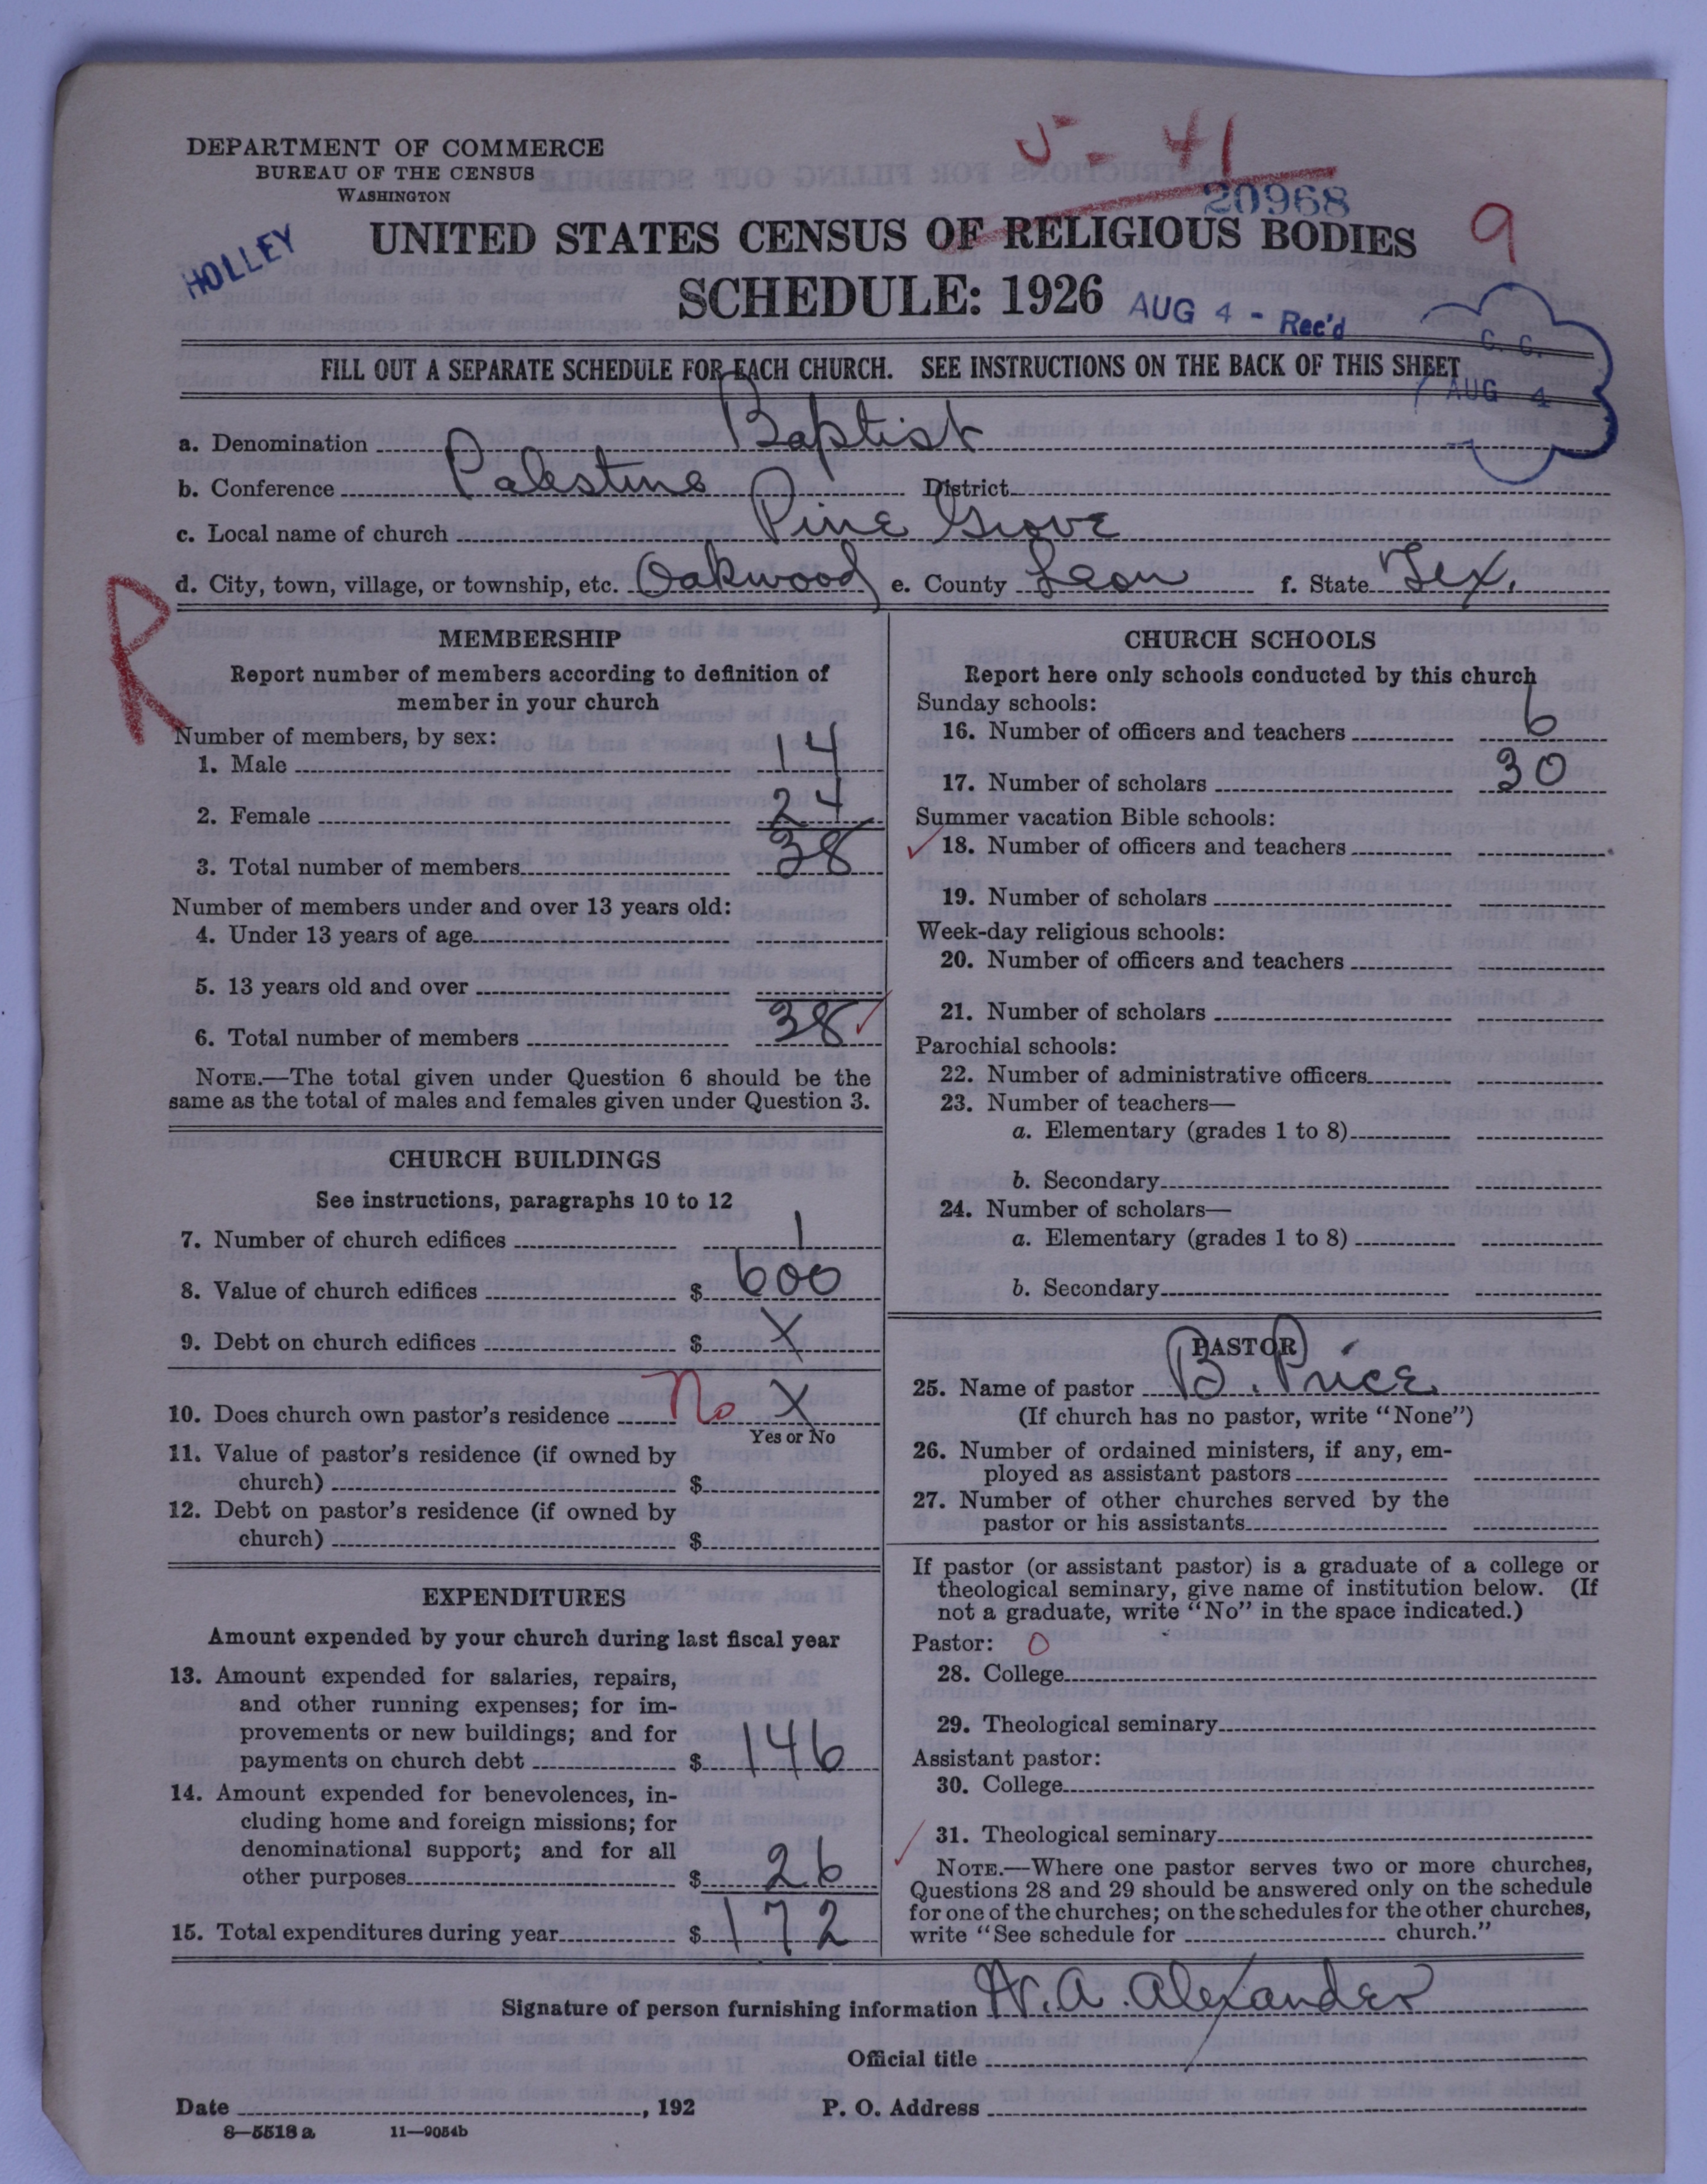 5-41
DEPARTMENT OF COMMERCE
BUREAU OF THE CENSUS
WASHINGTON
20968
HOLLEY
UNITED STATES CENSUS OF RELIGIOUS BODIES
9
SCHEDULE: 1926
AUG 4 - Rec'd
C. C.
AUG 4
FILL OUT A SEPARATE SCHEDULE FOR EACH CHURCH. SEE INSTRUCTIONS ON THE BACK OF THIS SHEET
a. Denomination Baptist
b. Conference Palestine District
c. Local name of church Pine Grove
d. City, town, village, or township, etc. Oakwood e. County Leon f. State Tex.
R
MEMBERSHIP
Report number of members according to definition of
member in your church
Number of members, by sex:
1. Male 14
2. Female 24
3. Total number of members 38
Number of members under and over 13 years old:
4. Under 13 years of age
5. 13 years old and over
6. Total number of members 38 ✓
NOTE.—The total given under Question 6 should be the
same as the total of males and females given under Question 3.
CHURCH BUILDINGS
See instructions, paragraphs 10 to 12
7. Number of church edifices 1
8. Value of church edifices $ 600
9. Debt on church edifices $ X
10. Does church own pastor's residence No X
Yes or No
11. Value of pastor's residence (if owned by
church) $
12. Debt on pastor's residence (if owned by
church) $
EXPENDITURES
Amount expended by your church during last fiscal year
13. Amount expended for salaries, repairs,
and other running expenses; for im-
provements or new buildings; and for
payments on church debt $ 146
14. Amount expended for benevolences, in-
cluding home and foreign missions; for
denominational support; and for all
other purposes $ 26
15. Total expenditures during year $ 172
CHURCH SCHOOLS
Report here only schools conducted by this church
Sunday schools:
16. Number of officers and teachers 6
17. Number of scholars 30
Summer vacation Bible schools:
✓ 18. Number of officers and teachers
19. Number of scholars
Week-day religious schools:
20. Number of officers and teachers
21. Number of scholars
Parochial schools:
22. Number of administrative officers
23. Number of teachers—
a. Elementary (grades 1 to 8)
b. Secondary
24. Number of scholars—
a. Elementary (grades 1 to 8)
b. Secondary
PASTOR
25. Name of pastor B. Price
(If church has no pastor, write "None")
26. Number of ordained ministers, if any, em-
ployed as assistant pastors
27. Number of other churches served by the
pastor or his assistants
If pastor (or assistant pastor) is a graduate of a college or
theological seminary, give name of institution below. (If
not a graduate, write "No" in the space indicated.)
Pastor: 0
28. College
29. Theological seminary
Assistant pastor:
30. College
✓ 31. Theological seminary
NOTE.—Where one pastor serves two or more churches,
Questions 28 and 29 should be answered only on the schedule
for one of the churches; on the schedules for the other churches,
write "See schedule for church."
Signature of person furnishing information W. A. Alexander
Official title
Date , 192 P. O. Address
8—5518 a 11—9054b